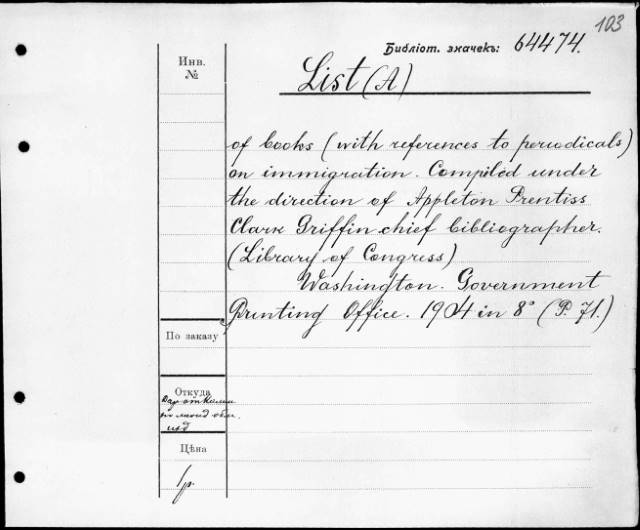 103
Библіот. значекъ: 64474.
Инв.
№
List (A)
of books (with references to periodicals)
on immigration. Compiled under
the direction of Appleton Prentiss
Clark Griffin chief bibliographer.
(Library of Congress)
Washington. Government
Printing Office. 1904 in 8° (P. 71.)
По заказу
Откуда
Цѣна
1р.